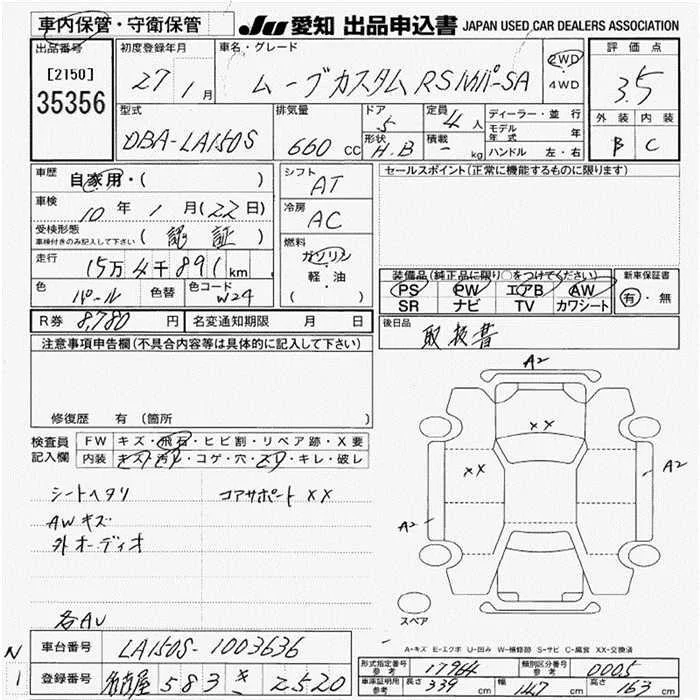 車内保管・守衛保管 JU 愛知 出品申込書 JAPAN USED CAR DEALERS ASSOCIATION
出品番号 [2150] 35356
初度登録年月 27年 1月
車名・グレード ムーブカスタム RS ハイパーSA
2WD・4WD
評価点 3.5
外装 B 内装 C
型式 DBA-LA150S
排気量 660 cc
ドア 5
形状 H.B
定員 4人
積載 - kg
ディーラー・並行
モデル年式 年
ハンドル 左・右
車歴 自家用・( )
車検 10年 1月(22日)
受検形態 車検付きのみ記入して下さい (認証)
走行 15万4千891km
色 パール 色替 色コード W24
R券 8,780円 名変通知期限 月 日
シフト AT
冷房 AC
燃料 ガソリン・軽・油 ( )
セールスポイント(正常に機能するものに限ります)
装備品(純正品に限り○をつけてください) 新車保証書
PS PW エアB AW 有・無
SR ナビ TV カワシート
後日品 取扱書
注意事項申告欄(不具合内容等は具体的に記入して下さい)
修復歴 有 (箇所 )
検査員記入欄 FW キズ・飛石・ヒビ割・リペア跡・X要
内装 キズ・汚れ・コゲ・穴・スリ・キレ・破レ
シートヘタリ コアサポート XX
AWキズ
外オーディオ
A2
XX
XX
A2
A2
スペア
A-キズ E-エクボ U-凹み W-補修跡 S-サビ C-腐食 XX-交換済
車台番号 LA150S-1003636
N1
登録番号 名古屋 583 き 2520
型式指定番号 参考 17964 類別区分番号 参考 0005
車庫証明用 参考 長さ 339 cm 幅 147 cm 高さ 163 cm